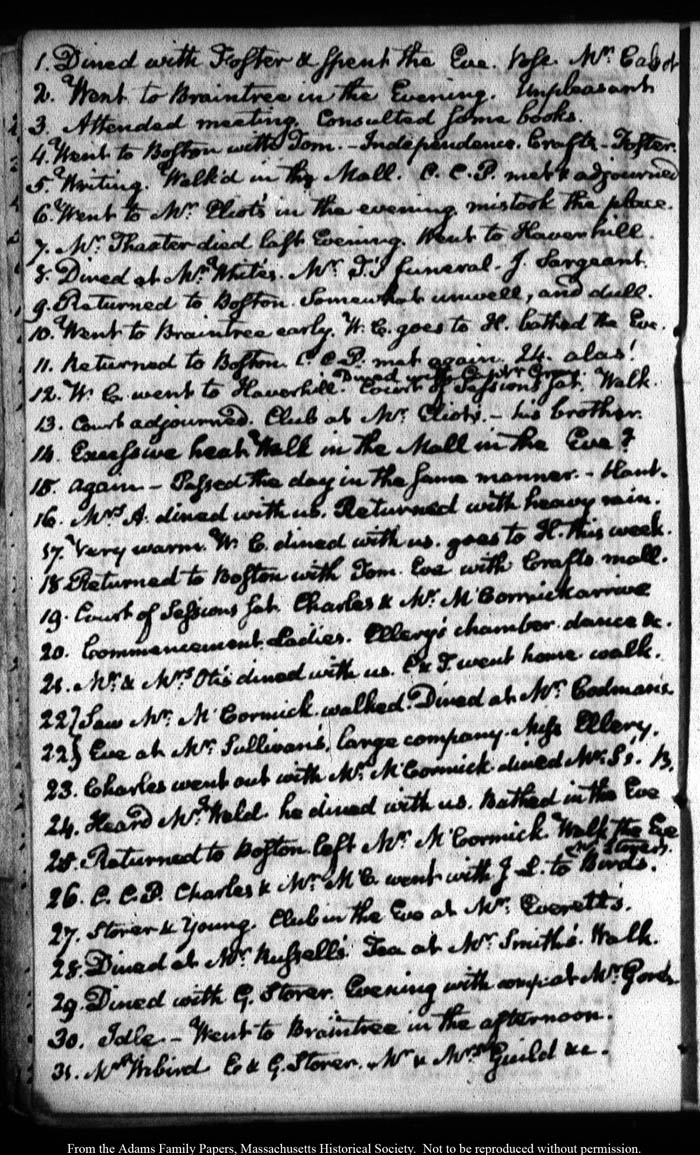 1. Dined with Foster & spent the Eve. Vose. Mr. Cabot
2. Went to Braintree in the Evening. Unpleasant
3. Attended meeting. Consulted some books.
4. Went to Boston with Tom. - Independence. Crafts - Foster.
5. Writing. Walk'd in the Mall. C. C. P. met & adjourned
6. Went to Mr. Eliot's in the evening. mistook the place.
7. Mr. Thaxter died last Evening. Went to Haverhill.
8. Dined at Mr. White's. Mr. T's funeral. J. Sargeant.
9. Returned to Boston. Somewhat unwell, and dull.
10. Went to Braintree early. W. C. goes to H. bathed the Eve.
11. Returned to Boston. C. C. P. met again. 24. alas!
Dined with
12. W. C. went to Haverhill. Court of Sessions sat. Walk.
13. Court adjourned. Club at Mr. Eliot's. - his brother.
14. Excessive heat. Walk in the Mall in the Eve?
15. again - Passed the day in the same manner. -
16. Mrs A. dined with us. Returned with heavy rain.
17. Very warm. W. C. dined with us. goes to H. this week.
18. Returned to Boston with Tom. Eve with Crafts. mall.
19. Court of Sessions sat. Charles & Mr. McCormick arrive
20. Commencement. Ladies. Ellery's chamber. dance &c.
21. Mr. & Mrs Otis dined with us. C & T went home. walk.
22} Saw Mr. McCormick. walked. Dined at Mr. Codman's
22} Eve at Mr. Sullivan's, large company. Miss Ellery.
23. Charles went out with Mr. McCormick. dined Mr. S's. B.
24. Heard Mr. Weld. he dined with us. Bathed in the Eve
25. Returned to Boston. left Mr. McCormick. Walk the Eve
Storer's.
26. C. C. P. Charles & Mr. McC. went with J. L. to Bird's.
27. Storer & Young. Club in the Eve at Mr. Everett's.
28. Dined at Mr. Russell's. Tea at Mr. Smith's. Walk.
29. Dined with G. Storer. Evening with comp. at Mr.
30. Idle. - Went to Braintree in the afternoon.
31. E & G. Storer. Mr & Mrs Guild &c.
From the Adams Family Papers, Massachusetts Historical Society. Not to be reproduced without permission.